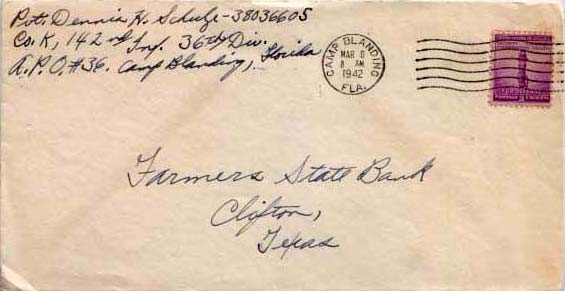 Pvt. Dennis H. Schulze - 38036605
Co. K, 142nd Inf. 36th Div.
A.P.O. #36. Camp Blanding, Florida
CAMP BLANDING
MAR 6
8 AM
1942
FLA.
Farmers State Bank
Clifton,
Texas